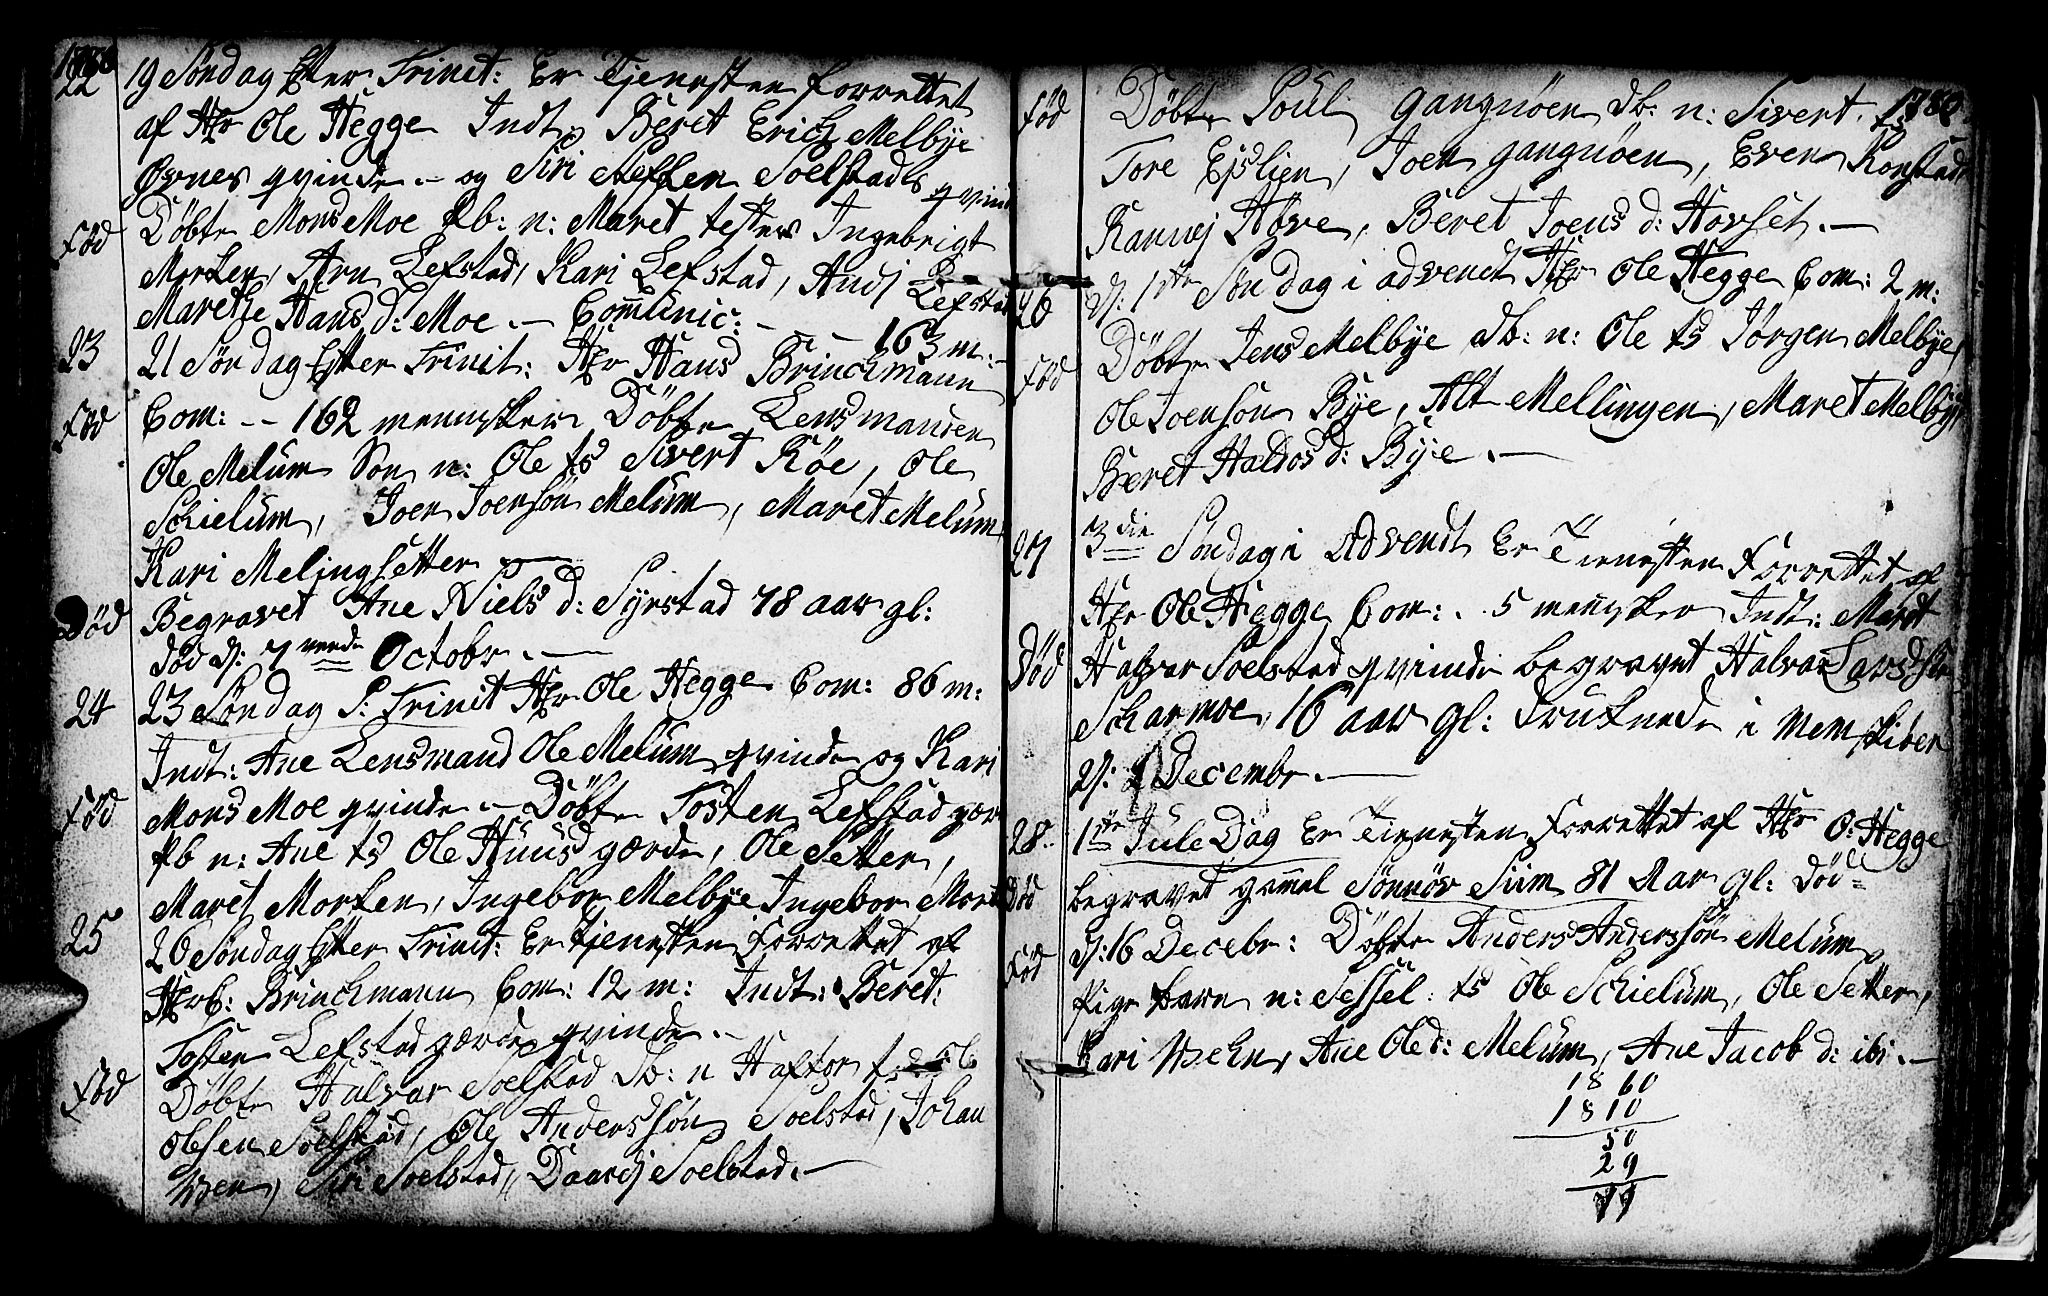 1780
22 19 Søndag Efter Trinit: Er Tjenesten forrettet
af Hr Ole Hegge Indt: Beret Erich Melbye
Øvnes qvinde. – og Siri Steffen Soelstads qvinde
Fød Døbt Mons Moe Pb: n: Maret testes Ingebrigt
Morken, Arn Lefstad, Kari Lefstad, And Lefstad
Marethe Hans d: Moe. – Comunic: – – – 163 m: –
23 21 Søndag Efter Trinit: Hr Hans Brinchmann
Fød Com: – – 162 mennisker Døbt Lensmanden
Ole Melum Søn n: Ole ts Sivert Røe, Ole
Schielum, Joen Joensøn Melum, Maret Melum
Kari Melingsetter –
Død Begravet Ane Niels d: Syrstad 78 aar gl:
død d: 7 October. –
24 23 Søndag P: Trinit Hr Ole Hegge Com: 86 m:
Indt: Ane Lensmand Ole Melum qvinde og Kari
Fød Mons Moe qvinde. – Døbt Tosten Lefstad
Pb n: Ane ts Ole Huusgærde, Ole Setter,
Maret Morken, Ingebor Melbye Ingebor
25 26 Søndag Efter Trinit: Er Tjenesten Forrettet af
Hr Brinchmann Com: 12 m: Indt: Beret
Tosten Lefstad qvinde. –
Fød Døbt Halvar Soelstad Db: n Haftor ts Ole
Olsen Soelstad, Ole Anderssøn Soelstad, Johan
Siri Soelstad, Soelstad. –
1780
Fød Døbt Poul gangnøen Db: n: Sivert. ts
Tore Eislien, Joen gangnøen, Even Konstad
Ranvej Høve, Beret Joens d: Hovset. –
26 d: 1ste Søndag i advendt Hr Ole Hegge Com: 2 m:
Fød Døbt Jens Melbye Db: n: Ole ts Jørgen Melbye,
Ole Joensøn Bye, Mellingen, Maret Melbye
Beret Haldos d: Bye. –
27 3die Søndag i Advendt Er Tienesten Forrettet af
Hr Ole Hegge Com: . 5 mennisker Indt: Maret
Død Halvar Soelstad qvinde begravet Halvar
Scharmoe, 16 aar gl: druknede i
d: Decembr. –
28. 1ste Jule Dag Er Tienesten Forrettet af Hr O: Hegge
Død begravet gamel Sønnøv Siim 81 Aar gl: død
Fød d: 16 Decebr: Døbt Anders Anderssøn Melum
Pige barn n: Sessel. ts Ole Schielum, Ole Setter,
Kari, Ane Ole d: Melum, Ane Jacob d: ibi. –
1860
1810
50
29
79